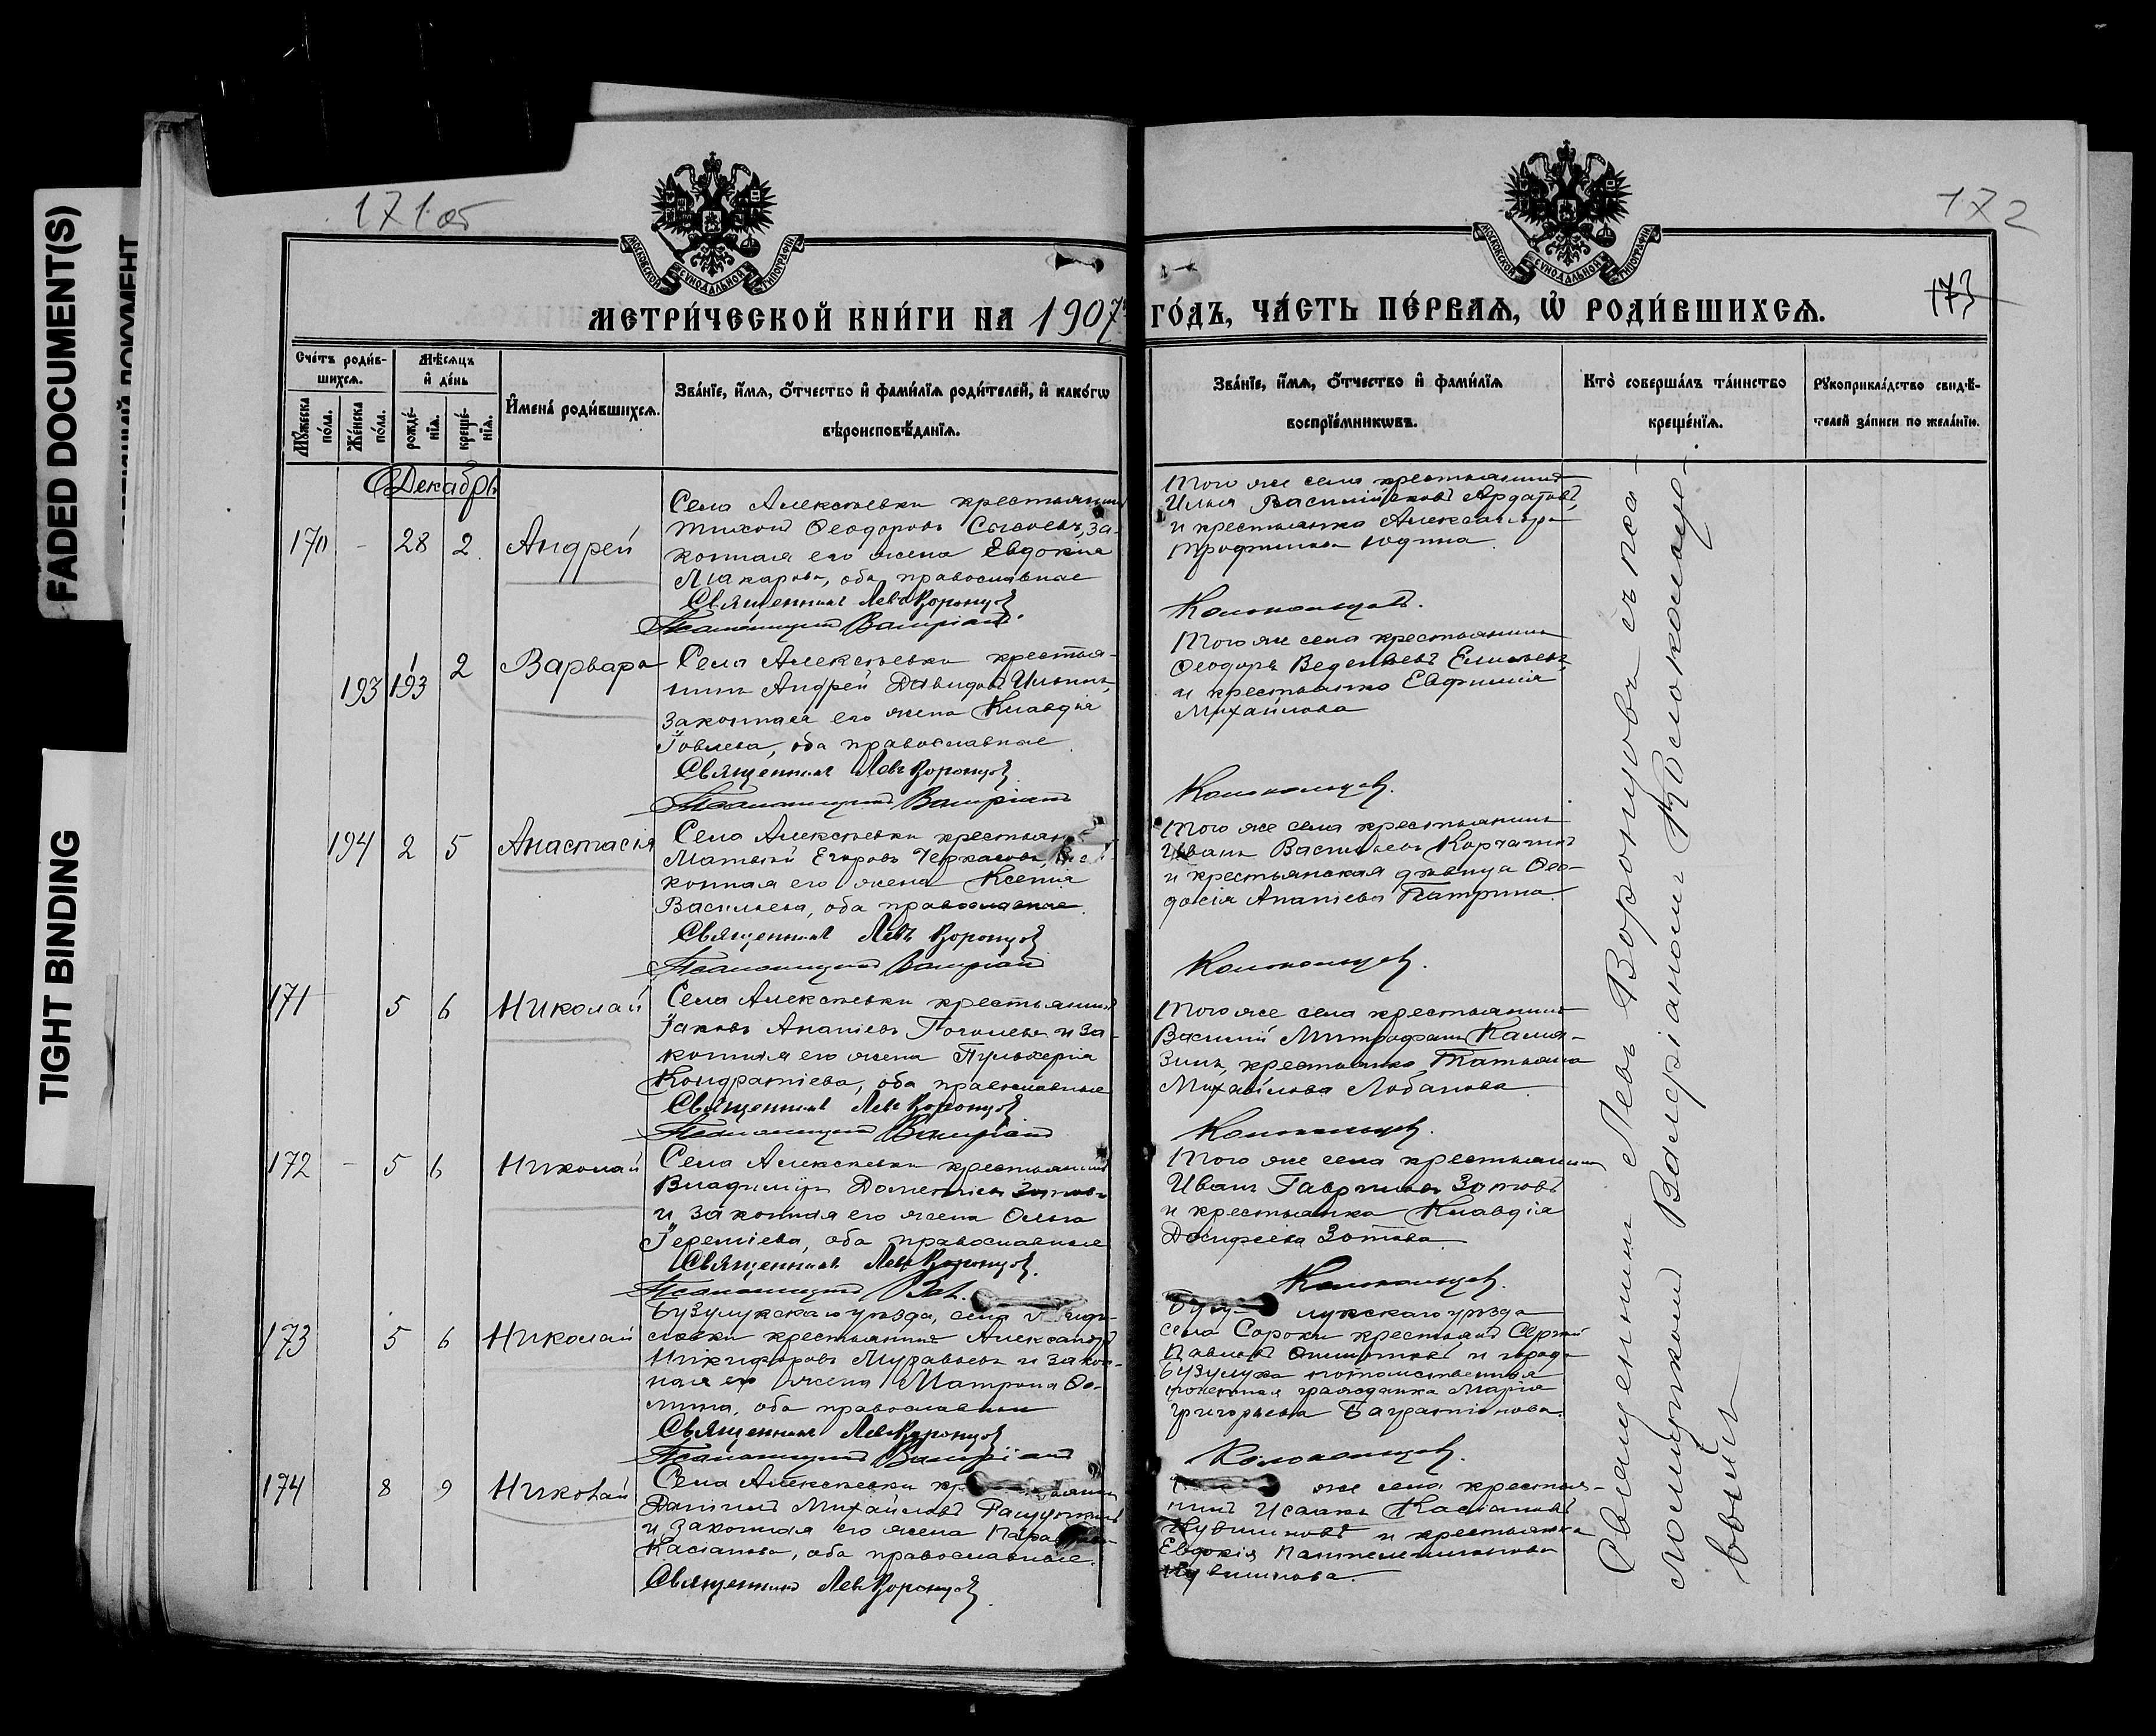 FADED DOCUMENT(S)
TIGHT BINDING
171 об
172
173
МОСКОВСКОЙ СѴНОДАЛЬНОЙ ТИПОГРАФІИ
МОСКОВСКОЙ СѴНОДАЛЬНОЙ ТИПОГРАФІИ
МЕТРИ́ЧЕСКОЙ КНИ́ГИ НА 1907 ГО́ДЪ, ЧА́СТЬ ПЕ́РВАѦ, Ѡ҆ РОДИ́ВШИХСѦ.
Сче́тъ роди́в-
шихсѧ.
Мѣ́сѧцъ
и҆ де́нь
Мꙋ́жеска по́ла.
Же́нска по́ла.
рожде́-нїѧ.
креще́-нїѧ.
И҆мена̀ роди́вшихсѧ.
Зва́нїе, и҆́мѧ, ѻ҆́тчество и҆ фами́лїѧ роди́телей, и҆ како́гѡ
вѣроисповѣ́данїѧ.
Зва́нїе, и҆́мѧ, ѻ҆́тчество и҆ фами́лїѧ
воспрїе́мникѡвъ.
Кто̀ соверша́лъ та́инство
креще́нїѧ.
Рꙋкоприкла́дство свидѣ́-
телей за́писи по жела́нїю.
Декабрь
170 - 28 2 Андрей
Села Алексѣевки крестьянинъ
Тихонъ Ѳеодоровъ Сысоевъ, за-
конная его жена Евдокія
Макарова, оба православные
Священникъ Левъ Воронцов
Псаломщикъ Валеріанъ
Того же села крестьянинъ
Илья Васильевъ Ардатовъ,
и крестьянка Александра
Трофимова Юдина
Колокольцевъ.
193 1 2 Варвара
193
Села Алексѣевки крестья-
нинъ Андрей Давидовъ Ильинъ,
законная его жена Клавдія
Іовлева, оба православные
Священникъ Левъ Воронцов
Псаломщикъ Валеріанъ
Того же села крестьянинъ
Ѳеодоръ Веденѣевъ
и крестьянка Евфимія
Михайлова
Колокольцев.
194 2 5 Анастасія
Села Алексѣевки
Матвѣй Егоровъ Черкасовъ,
конная его жена Ксенія
Васильева, оба православные
Священникъ Левъ Воронцов
Псаломщикъ Валеріанъ
Того же села крестьянинъ
Иванъ Васильевъ Корчагинъ
и крестьянская дѣвица Ѳео-
досія Ананіева
Колокольцев.
171 5 6 Николай
Села Алексѣевки крестьянинъ
Іаковъ Ананіевъ и за-
конная его жена Пульхерія
Кондратіева, оба православные
Священникъ Левъ Воронцов
Псаломщикъ Валеріанъ
Того же села крестьянинъ
Василій Митрофанъ Каля-
зинъ, крестьянка Татьяна
Михайлова Лобанова
Колокольцев.
172 - 5 6 Николай
Села Алексѣевки крестьянинъ
Владиміръ Дометіевъ Зотовъ
и законная его жена Ольга
Іереміева, оба православные
Священникъ Левъ Воронцов.
Псаломщикъ Вал.
Того же села крестьянинъ
Иванъ Гавриловъ Зотовъ
и крестьянка Клавдія
Досифеева Зотова
Колокольцев.
173 5 6 Николай
Бузулукскаго уѣзда, села
славки крестьянинъ Александръ
Никифоровъ Муравьевъ и закон-
ная его жена Матрона Ѳо-
мина, оба православные
Священникъ Левъ Воронцов
Псаломщикъ Валеріанъ
лукскаго уѣзда
села Сороки крестьянинъ Сергій
Павловъ и города
Бузулука потомственная
почетная гражданка Марія
Григорьева
Колокольцев.
174 8 9 Николай
Села Алексѣевки
Даніилъ Михайловъ
и законная его жена
Касіанова, оба православные.
Священникъ Левъ Воронцов.
же села крестья-
нинъ Исаакъ Касіановъ
Кувшиновъ и крестьянка
Евдокія Пантелеимонова
Кувшинова.
Священникъ Левъ Воронцовъ съ пса-
ломщикомъ Валеріаномъ Колокольце-
вымъ